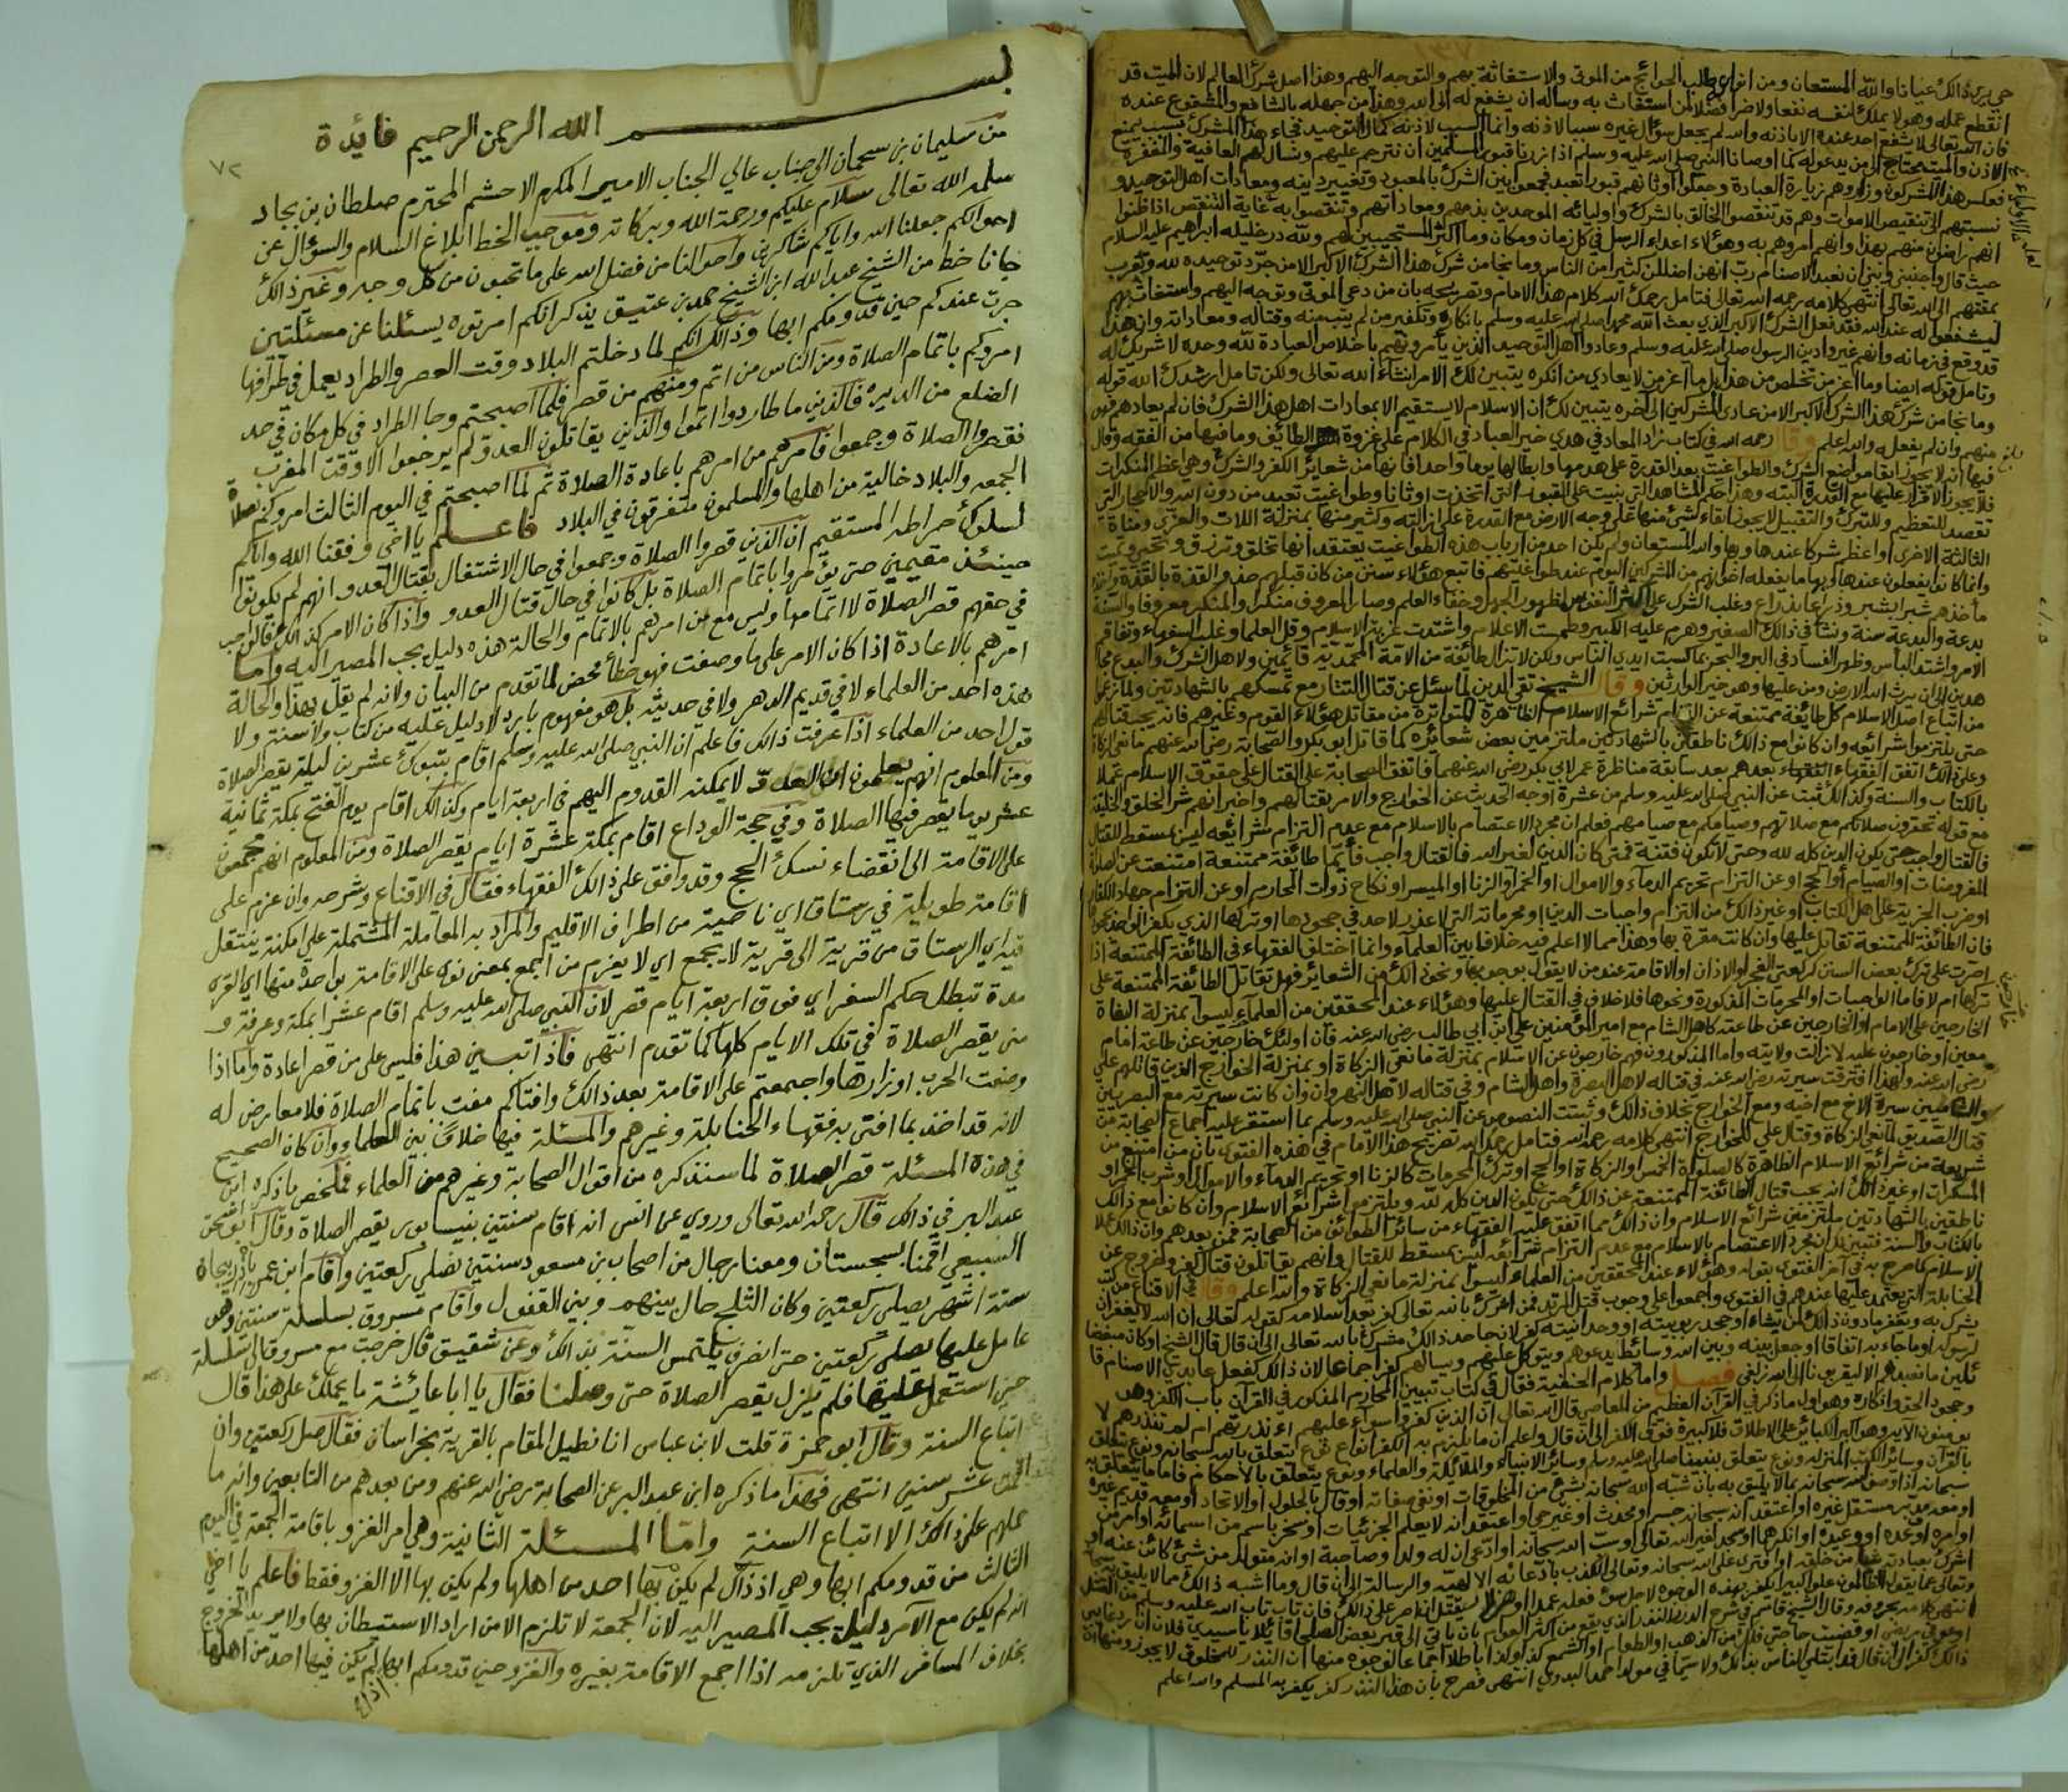 حتى يرى ذالك عيانا والله المستعان ومن انواعه طلب الحوائج من الموتى والاستغاثة بهم والتوجه اليهم وهذا اصل شرك العالم لان الميت قد
انقطع عمله وهو لا يملك لنفسه نفعا ولا ضرا فضلا لمن استغاث به وساله ان يشفع له الى الله وهذا من جهله بالشافع والمشفوع عنده
فان الله تعالى لا يشفع احد عنده الا باذنه والله لم يجعل سؤال غيره سببا لاذنه وانما السبب لاذنه كمال التوحيد فجاء هذا المشرك بسبب يمنع
الاذن والميت محتاج الى من يدعو له كما اوصانا النبي صلى الله عليه وسلم اذا زرنا قبور المسلمين ان نترحم عليهم ونسال لهم العافية والمغفرة
فعكس هذا المشركون وزاروهم زيارة العبادة وجعلوا قبورهم اوثانا تعبد فجمعوا بين الشرك بالمعبود وتغيير دينه ومعادات اهل التوحيد و
نسبتهم الى التنقيص الاموات وهم قد تنقصوا الخالق بالشرك واوليائه الموحدين بذمهم ومعاداتهم وتنقصوا به غاية التنقص اذا ظنوا
انهم راضون منهم بهذا وانهم امروهم به وهؤلاء اعداء الرسل في كل زمان ومكان وما اكثر المستجيبين لهم ولله در خليله ابراهيم عليه السلام
حيث قال واجنبني وبني ان نعبد الاصنام رب انهن اضللن كثيرا من الناس وما نجا من شرك هذا الشرك الاكبر الا من جرد توحيده لله وتقرب
بمقتهم الى الله تعالى انتهى كلامه رحمه الله تعالى فتامل رحمك الله كلام هذا الامام وتصريحه بان من دعى الموتى وتوجه اليهم واستغاث بهم
ليشفعوا له عند الله فقد فعل الشرك الاكبر الذي بعث الله محمدا صلى الله عليه وسلم بانكاره وتكفير من لم يتب منه وقتاله ومعاداته وان هذا
قد وقع في زمانه وانهم غيروا دين الرسول صلى الله عليه وسلم وعادوا اهل التوحيد الذين يأمرونهم باخلاص العبادة لله وحده لا شريك له
وتامل قوله ايضا وما اعز من تخلص من هذا بل ما اعز من لا يعادي من انكره يتبين لك الامر انشاء الله تعالى ولكن تامل ارشدك الله قوله
وما نجا من شرك هذا الشرك الاكبر الا من عادى المشركين الى آخره يتبين لك ان الاسلام لا يستقيم الا بمعادات اهل هذا الشرك فان لم يعادهم فهو
منهم وان لم يفعله والله اعلم وقال رحمه الله في كتاب زاد المعاد في هدي خير العباد في الكلام على غزوة الطائف وما فيها من الفقه وقال
فيها انه لا يجوز ابقاء مواضع الشرك والطواغيت بعد القدرة على هدمها وابطالها يوما واحدا فانها من شعائر الكفر والشرك وهي اعظم المنكرات
فلا يجوز الاقرار عليها مع القدرة البته وهذا حكم المشاهد التي بنيت على القبور التي اتخذت اوثانا وطواغيت تعبد من دون الله والاحجار التي
تقصد للتعظيم وللتبرك والتقبيل لا يجوز ابقاء شئ منها على وجه الارض مع القدرة على ازالته وكثير منها بمنزلة اللات والعزى ومناة
الثالثة الاخرى او اعظم شركا عندها وبها والله المستعان ولم يكن احد من ارباب هذه الطواغيت يعتقد انها تخلق وترزق وتحيي وتميت
وانما كانوا يفعلون عندها وبها ما يفعله اخوانهم من المشركين اليوم عند طواغيتهم فاتبع هؤلاء سنن من كان قبلهم حذو القذة بالقذة
مأخذهم شبرا بشبر وذراعا بذراع وغلب الشرك على اكثر النفوس لظهور الجهل وخفاء العلم وصار المعروف منكرا والمنكر معروفا والسنة
بدعة والبدعة سنة ونشأ في ذالك الصغير وهرم عليه الكبير وطمست الاعلام واشتدت غربة الاسلام وقل العلما وغلب السفهاء وتفاقم
الامر واشتد البأس وظهر الفساد في البر والبحر بما كسبت ايدي الناس ولكن لا تزال طائفة من الامة المحمدية قائمين ولاهل الشرك والبدع
الى ان يرث الله الارض ومن عليها وهو خير الوارثين وقال الشيخ تقي الدين لما سئل عن قتال التتار مع تمسكهم بالشهادتين
من اتباع اصل الاسلام كل طائفة ممتنعة عن التزام شرائع الاسلام الظاهرة المتواترة من مقاتل هؤلاء القوم وغيرهم فانه يجب قتالهم
حتى يلتزموا شرائعه وان كانوا مع ذالك ناطقين بالشهادتين ملتزمين بعض شعائره كما قاتل ابو بكر والصحابة رضي الله عنهم مانعي الزكاة
وعلى ذالك اتفق الفقهاء بعدهم بعد سابقة مناظرة عمر لابي بكر رضي الله عنهما فاتفق الصحابة على القتال على حقوق الاسلام عملا
بالكتاب والسنة وكذالك ثبت عن النبي صلى الله عليه وسلم من عشرة اوجه الحديث عن الخوارج والامر بقتالهم واخبر انهم شر الخلق والخليقة
مع قوله تحقرون صلاتكم مع صلاتهم وصيامكم مع صيامهم فعلم ان مجرد الاعتصام بالاسلام مع عدم التزام شرائعه ليس بمسقط للقتال
فالقتال واجب حتى يكون الدين كله لله وحتى لا تكون فتنة فمتى كان الدين لغير الله فالقتال واجب فأيما طائفة ممتنعة امتنعت عن الصلاة
المفروضات او الصيام او الحج او عن التزام تحريم الدماء والاموال او الخمر او الزنا او الميسر او نكاح ذوات المحارم او عن التزام جهاد الكفار
او ضرب الجزية على اهل الكتاب او غير ذالك من التزام واجبات الدين او محرماته التي لا عذر لاحد في جحودها او تركها الذي يكفر
فان الطائفة الممتنعة تقاتل عليها وان كانت مقرة بها وهذا مما لا اعلم فيه خلافا بين العلماء وانما اختلف الفقهاء في الطائفة الممتنعة اذا
اصرت على ترك بعض السنن كركعتي الفجر او الاذان او الاقامة عند من لا يقول بوجوبها ونحو ذالك من الشعائر فهل تقاتل الطائفة الممتنعة على
تركها ام لا فاما الواجبات او المحرمات المذكورة ونحوها فلا خلاف في القتال عليها وهؤلاء عند المحققين من العلماء ليسوا بمنزلة البغاة
الخارجين على الامام او الخارجين عن طاعته كاهل الشام مع امير المؤمنين علي ابن ابي طالب رضي الله عنه فان اولئك خارجين عن طاعة امام
معين او خارجون عليه لازالت ولايته واما المذكورون فهم خارجون عن الاسلام بمنزلة مانعي الزكاة او بمنزلة الخوارج الذين قاتلهم علي
رضي الله عنه ولهذا افترقت سيرته رضي الله عنه في قتاله لاهل البصرة واهل الشام وفي قتاله لاهل النهروان وان كانت سيرته مع البصريين
والشاميين سيرة الاخ مع اخيه ومع الخوارج بخلاف ذالك وثبتت النصوص عن النبي صلى الله عليه وسلم بما استقر عليه اجماع الصحابة من
قتال الصديق لمانعي الزكاة وقتال علي للخوارج انتهى كلامه رحمه الله فتامل رحمك الله تصريح هذا الامام في هذه الفتوى بان من امتنع من
شريعة من شرائع الاسلام الظاهرة كالصلواة الخمس او الزكاة او الحج او ترك المحرمات كالزنا او تحريم الدماء والاموال او شرب الخمر او
المسكرات او غير ذالك انه يجب قتال الطائفة الممتنعة عن ذالك حتى يكون الدين كله لله ويلتزموا شرائع الاسلام وان كانوا مع ذالك
ناطقين بالشهادتين ملتزمين شرائع الاسلام وان ذالك مما اتفق عليه الفقهاء من سائر الطوائف من الصحابة فمن بعدهم وان ذالك عملا
بالكتاب والسنة فتبين لك ان مجرد الاعتصام بالاسلام مع عدم التزام شرائعه ليس بمسقط للقتال وانهم يقاتلون قتال كفر وخروج عن
الاسلام كما صرح به في آخر الفتوى بقوله وهؤلاء عند المحققين من العلماء ليسوا بمنزلة مانعي الزكاة والله اعلم وقال في الاقناع من كتب
الحنابلة التي يعتمد عليها عندهم في الفتوى واجمعوا على وجوب قتل المرتد فمن اشرك بالله تعالى كفر بعد اسلامه كقوله تعالى ان الله لا يغفر ان
يشرك به ويغفر ما دون ذالك لمن يشاء او جحد ربوبيته او وحدانيته كفر لان جاحد ذالك مشرك بالله تعالى الى ان قال قال الشيخ او كان مبغضا
لرسوله او ما جاء به اتفاقا او جعل بينه وبين الله وسائط يدعوهم ويتوكل عليهم ويسالهم كفر اجماعا لان ذالك كفعل عابدي الاصنام قا
ئلين ما نعبدهم الا ليقربونا الى الله زلفى فصل واما كلام الحنفية فقال في كتاب تبيين المحارم المذكور في القرآن باب الكفر وهو
وجحود الحق وانكاره وهو اول ما ذكر في القرآن العظيم من المعاصي قال الله تعالى ان الذين كفروا سواء عليهم ءانذرتهم ام لم تنذرهم لا
يومنون الآيه وهو اكبر الكبائر على الاطلاق فلا كبيرة فوق الكفر الى ان قال واعلم ان ما يلزم به الكفر انواع نوع يتعلق بالله سبحانه ونوع يتعلق
بالقرآن وسائر الكتب المنزله ونوع يتعلق بنبينا صلى الله عليه وسلم وسائر الانبياء والملائكة والعلماء ونوع يتعلق بالاحكام فاما ما يتعلق به
سبحانه اذا وصف الله سبحانه بما لا يليق به بان شبه الله سبحانه بشئ من المخلوقات او نفى صفاته او قال بالحلول او الاتحاد او معه قديم غيره
او معه مدبر مستقل غيره او اعتقد انه سبحانه جسم او محدث او غير حي او اعتقد انه لا يعلم الجزئيات او سخر باسم من اسمائه او امر من
اوامره او وعده او وعيده او انكرهما او سجد لغير الله تعالى او سب الله سبحانه او ادعى ان له ولدا وصاحبة او انه متولد من شئ كائن عنه او
اشرك بعبادته شيئا من خلقه او افترى على الله سبحانه وتعالى الكذب بادعائه الالهية والرسالة الى ان قال وما اشبه ذالك مما لا يليق به سبحانه
وتعالى عما يقول الظالمون علوا كبيرا يكفر بهذه الوجوه لاجل سوء فعله عمدا او هزلا يقتل ان اصر على ذالك فان تاب تاب الله عليه وسلم من القتل
انتهى كلامه بحروفه وقال الشيخ قاسم في شرح الدرر النذر الذي يقع من اكثر العوام بان يأتي الى قبر بعض الصلحا قائلا يا سيدي فلان ان رد غائبي
او عوفي مريضي او قضيت حاجتي فلك من الذهب او الطعام او الشمع كذا وكذا باطل اجماعا لوجوه منها ان النذر للمخلوق لا يجوز ومنها ان
ذالك كفر الى ان قال قد ابتلي الناس بذالك ولا سيما في مولد احمد البدوي انتهى فصرح بان هذا النذر كفر يكفر به المسلم والله اعلم
٧٢
بسم الله الرحمن الرحيم فايدة
من سليمان بن سحمان الى جناب عالي الجناب الامير المكرم الاحشم المحترم صلطان بن بجاد
سلمه الله تعالى سلام عليكم ورحمة الله وبركاته وموجب الخط ابلاغ السلام والسؤال عن
احوالكم جعلنا الله واياكم شاكرين واحوالنا من فضل الله على ما تحبون من كل وجه وغير ذالك
جانا خط من الشيخ عبد الله ابن الشيخ حمد بن عتيق يذكر انكم امرتوه يسئلنا عن مسئلتين
جرت عندكم حين قدومكم ابها وذالك انكم لما دخلتم البلاد وقت العصر والطراد يعمل في طرافها
امروكم باتمام الصلاة ومن الناس من اتم ومنهم من قصر فلما اصبحتم وجا الطراد في كل مكان في حد
الضلع من الديره فالذين ما طاردوا اتموا والذين يقاتلون العدو لم يرجعوا الا وقت المغرب
فقصروا الصلاة وجمعوا فامرهم من امرهم باعادة الصلاة ثم لما اصبحتم في اليوم الثالث امروكم بصلاة
الجمعه والبلاد خالية من اهلها والمسلمون متفرقون في البلاد فاعلم يا اخي وفقنا الله واياكم
لسلوك صراطه المستقيم ان الذين قصروا الصلاة وجمعوا في حال الاشتغال بقتال العدو انهم لم يكونوا
حينئذ مقيمين حتى يؤمروا باتمام الصلاة بل كانوا في حال قتال العدو واذا كان الامر كذالك فالواجب
في حقهم قصر الصلاة لا اتمامها وليس مع من امرهم بالاتمام والحالة هذه دليل يجب المصير اليه واما
امرهم بالاعادة اذا كان الامر على ما وصفت فهو خطأ محض لما تقدم من البيان ولانه لم يقل بهذا والحالة
هذه احد من العلماء لا في قديم الدهر ولا في حديثه بل هو مفهوم بارد لا دليل عليه من كتاب ولا سنة ولا
قول احد من العلماء اذا عرفت ذالك فاعلم ان النبي صلى الله عليه وسلم اقام بتبوك عشرين ليلة يقصر الصلاة
ومن المعلوم انهم يعلمون ان العدو لا يمكنه القدوم اليهم في اربعة ايام وكذالك اقام يوم الفتح بمكة ثمانية
عشر يوما يقصر فيها الصلاة وفي حجة الوداع اقام بمكة عشرة ايام يقصر الصلاة ومن المعلوم انهم مجمعون
على الاقامة الى انقضاء نسك الحج وقد وافق على ذالك الفقهاء فقال في الاقناع وشرحه وان عزم على
اقامة طويلة في رستاق اي ناحية من اطراف الاقليم والمراد به المعاملة المشتملة على امكنة ينتقل
فيه اي الرستاق من قرية الى قرية لا يجمع اي لا يعزم من اجمع بمعنى نوى على الاقامة بواحدة منها اي القرى
مدة تبطل حكم السفر اي فوق اربعة ايام قصر لان النبي صلى الله عليه وسلم اقام عشرا بمكة وعرفة و
منى يقصر الصلاة في تلك الايام كلها كما تقدم انتهى فاذا تبين هذا فليس على من قصر اعادة واما اذا
وضعت الحرب اوزارها واجمعتم على الاقامة بعد ذالك وافتاكم مفت باتمام الصلاة فلا معارض له
لانه قد اخذ بما افتى به فقهاء الحنابلة وغيرهم والمسئلة فيها خلاف بين العلماء وان كان الصحيح
في هذه المسئلة قصر الصلاة لما سنذكره من اقوال الصحابة وغيرهم من العلماء فملخص ما ذكره ابن
عبد البر في ذالك قال رحمه الله تعالى وروي عن انس انه اقام سنتين بنيسابور يقصر الصلاة وقال ابو اسحق
السبيعي اقمنا بسجستان ومعنا رجال من اصحاب بن مسعود سنتين نصلي ركعتين واقام ابن عمر باذربيجان
ستة اشهر يصلي ركعتين وكان الثلج حال بينهم وبين القفول واقام مسروق بسلسلة سنتين وهو
عامل عليها يصلي ركعتين حتى انصرف يلتمس السنة بذالك وعن شقيق قال خرجت مع مسروق الى سلسلة
حين استعمل عليها فلم يزل يقصر الصلاة حتى وصلنا فقال يا ابا عايشة ما يحملك على هذا قال
اتباع السنة وقال ابو حمزة قلت لابن عباس انا نطيل المقام بالقرية بخراسان فقال صل ركعتين وان
اقمت عشر سنين انتهى فهذا ما ذكره ابن عبد البر عن الصحابة رضي الله عنهم ومن بعدهم من التابعين وانه ما
حملهم على ذالك الا اتباع السنة واما المسئلة الثانية وهي امر الغزو باقامة الجمعة في اليوم
الثالث من قدومكم ابها وهي اذ ذاك لم يكن بها احد من اهلها ولم يكن بها الا الغزو فقط فاعلم يا اخي
انه لم يكن مع الآمر دليل يجب المصير اليه لان الجمعة لا تلزم الا من اراد الاستيطان بها ولا يريد الخروج
بخلاف المسافر الذي تلزمه اذا اجمع الاقامة بغيره والغزو حين قدومكم ابها لم يكن فيها احد من اهلها